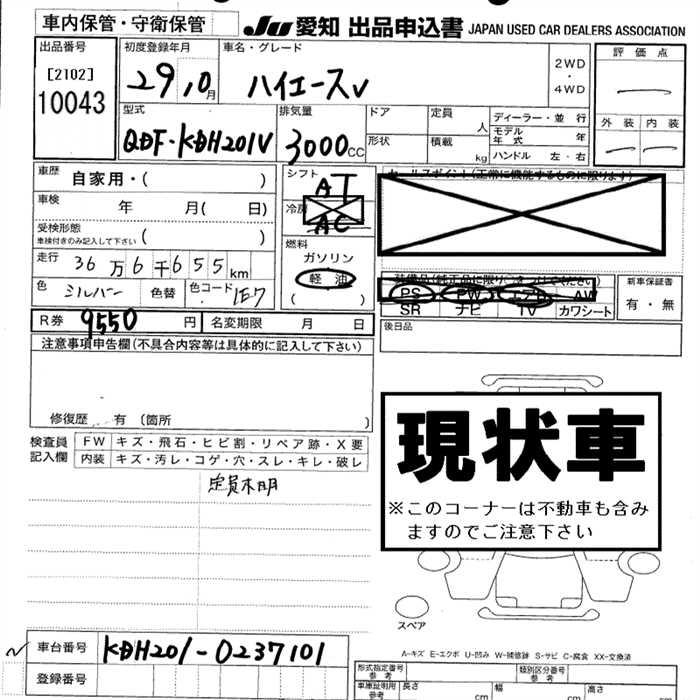 車内保管・守衛保管
JU 愛知 出品申込書 JAPAN USED CAR DEALERS ASSOCIATION
出品番号 [2102] 10043
初度登録年月 29,0月
車名・グレード ハイエースV
2WD・4WD
評価点
外装 内装
型式 QDF-KDH201V
排気量 3000cc
ドア 定員 人
形状 積載 kg
ディーラー・並行
モデル年式 年
ハンドル 左・右
車歴 自家用・( )
シフト AT
車検 年 月( 日)
冷房 AC
受検形態 車検付きのみ記入して下さい ( )
燃料 ガソリン 軽油 ( )
走行 36万6千655km
色 シルバー 色替 色コード 1E7
セールスポイント(正常に機能するものに限ります)
PS PW エアB AW
SR ナビ TV カワシート
新車保証書 有・無
R券 9550円 名変期限 月 日
後日品
注意事項申告欄(不具合内容等は具体的に記入して下さい)
修復歴 有 (箇所 )
検査員記入欄
FW キズ・飛石・ヒビ割・リペア跡・X要
内装 キズ・汚レ・コゲ・穴・スレ・キレ・破レ
定員不明
現状車
※このコーナーは不動車も含みますのでご注意下さい
スペア
A-キズ E-エクボ U-凹み W-補修跡 S-サビ C-腐食 XX-交換済
車台番号 KDH201-0237101
登録番号
形式指定番号 参考
類別区分番号 参考
車庫証明用 参考 長さ cm 幅 cm 高さ cm